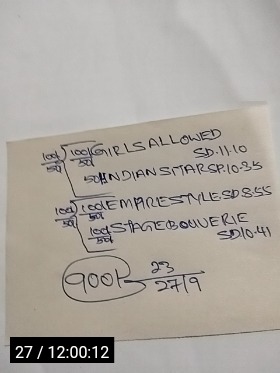 100/50 100/50 GIRLS ALLOWED
SD.11.10
50/- INDIANSTAR SP.10.35
100/50 100/50 EMPIRESTYLE SD8.55
100/50 STAGEBOUVERIE
SD10.41
900/- 23
27/9
27 / 12:00:12